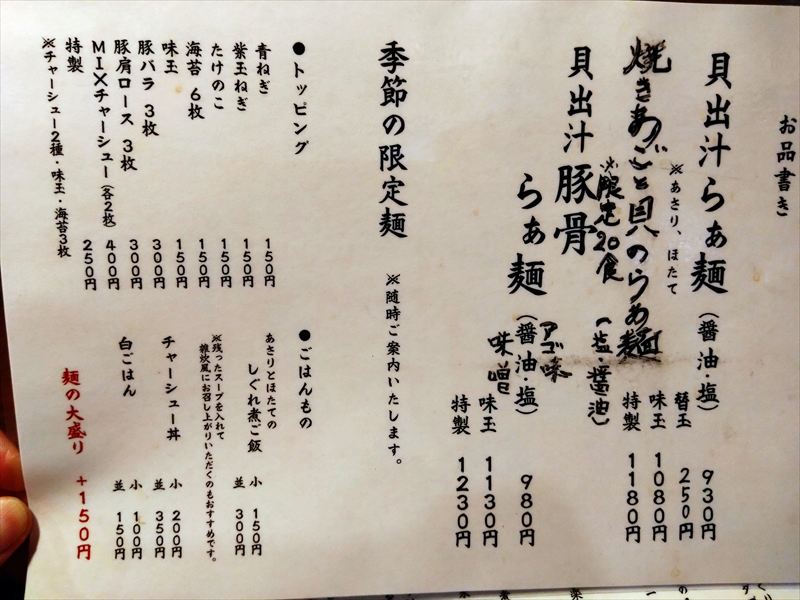 お品書き
貝出汁らぁ麺（醤油・塩） 930円
※あさり、ほたて
替玉 250円
味玉 1080円
特製 1180円
焼きあごと貝のらあ麺（塩・醤油）
※限定20食
貝出汁豚骨らぁ麺（醤油・塩） 980円
アゴ味
味噌
味玉 1130円
特製 1230円
季節の限定麺 ※随時ご案内いたします。
●トッピング
青ねぎ 150円
紫玉ねぎ 150円
たけのこ 150円
海苔 6枚 150円
味玉 150円
豚バラ 3枚 300円
豚肩ロース 3枚 300円
MIXチャーシュー（各2枚） 400円
特製 250円
※チャーシュー2種・味玉・海苔3枚
●ごはんもの
あさりとほたての
しぐれ煮ご飯 小 150円
並 300円
※残ったスープを入れて
雑炊風にお召し上がりいただくのもおすすめです。
チャーシュー丼 小 200円
並 350円
白ごはん 小 100円
並 150円
麺の大盛り +150円